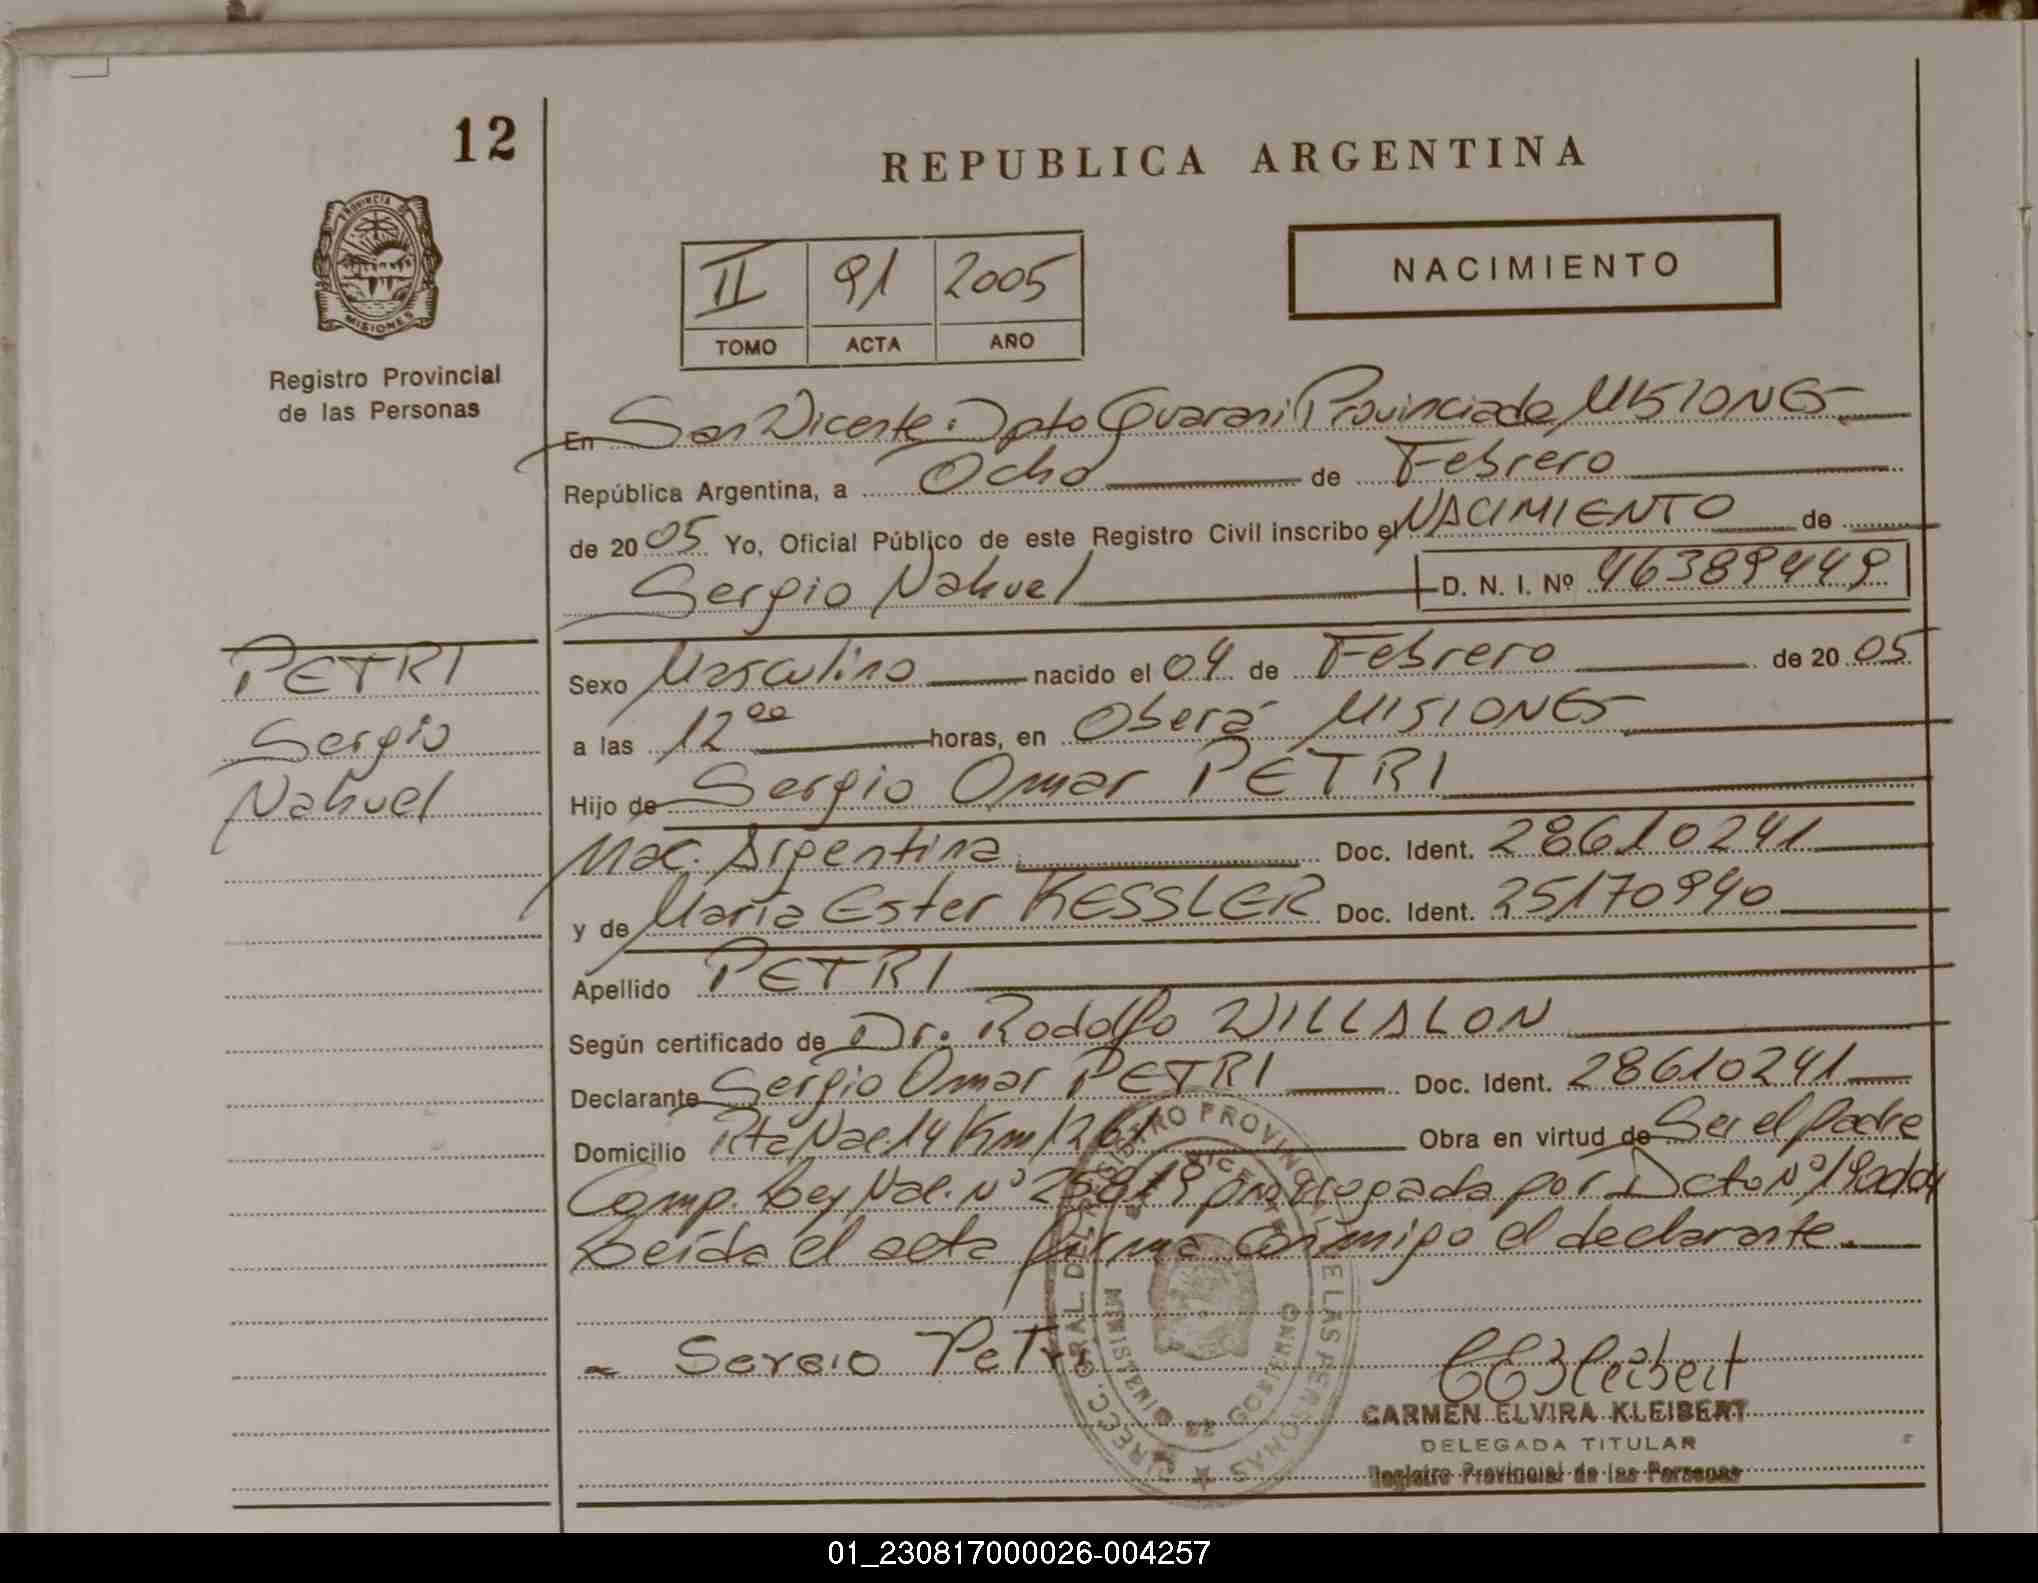 12
REPUBLICA ARGENTINA
PROVINCIA DE
MISIONES
Registro Provincial
de las Personas
NACIMIENTO
II 91 2005
TOMO ACTA AÑO
En San Vicente. Dpto Guarani Provincia de MISIONES
República Argentina, a Ocho de Febrero
de 2005 Yo, Oficial Público de este Registro Civil inscribo el NACIMIENTO de
Sergio Nahuel D. N. I. Nº 46389449
PETRI
Sergio
Nahuel
Sexo Masculino nacido el 04 de Febrero de 2005
a las 12 00 horas, en Oberá MISIONES
Hijo de Sergio Omar PETRI
Nac. Argentina Doc. Ident. 28610241
y de María Ester KESSLER Doc. Ident. 25170940
Apellido PETRI
Según certificado de Dr. Rodolfo VILLALON
Declarante Sergio Omar PETRI Doc. Ident. 28610241
Domicilio Rta Nac. 14 Km 1261 Obra en virtud de Ser el padre
Comp. Ley Nac. Nº 25819 prorrogada por Dcto Nº
Leída el acta firma conmigo el declarante.
Sergio Petri
CEKleibert
CARMEN ELVIRA KLEIBERT
DELEGADA TITULAR
Registro Provincial de las Personas
DIRECC. GRAL. DEL REGISTRO PROVINCIAL DE LAS PERSONAS
MINISTERIO DE GOBIERNO
01_230817000026-004257